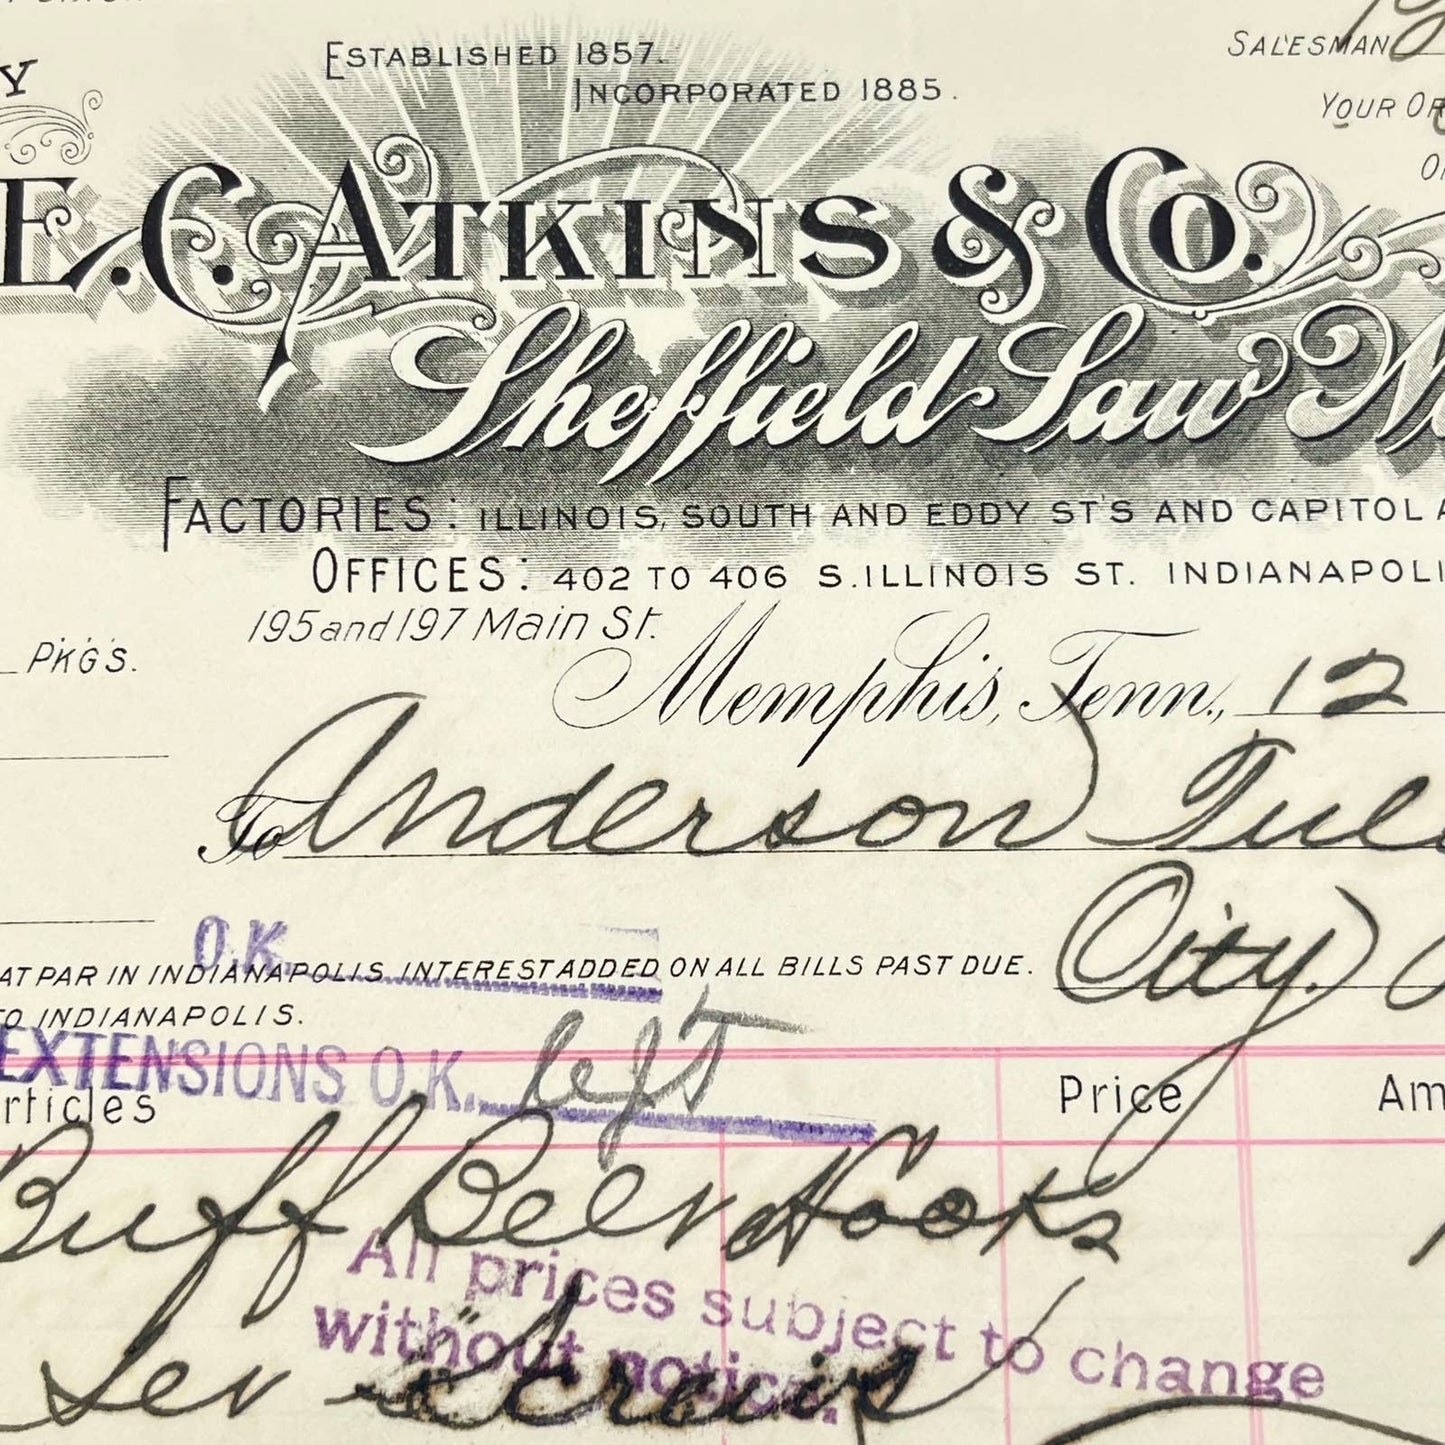 SALESMAN
ESTABLISHED 1857.
INCORPORATED 1885.
YOUR OR
Y
E. C. ATKINS & CO.
Sheffield Saw
FACTORIES: ILLINOIS, SOUTH AND EDDY ST'S AND CAPITOL A
OFFICES: 402 TO 406 S. ILLINOIS ST. INDIANAPOLI
195 and 197 Main St.
PKGS.
Memphis, Tenn., 12
To Anderson
City.
O.K.
AT PAR IN INDIANAPOLIS. INTEREST ADDED ON ALL BILLS PAST DUE.
TO INDIANAPOLIS.
EXTENSIONS O.K. left
rticles Price Am
Buff Hooks
All prices subject to change
without notice.